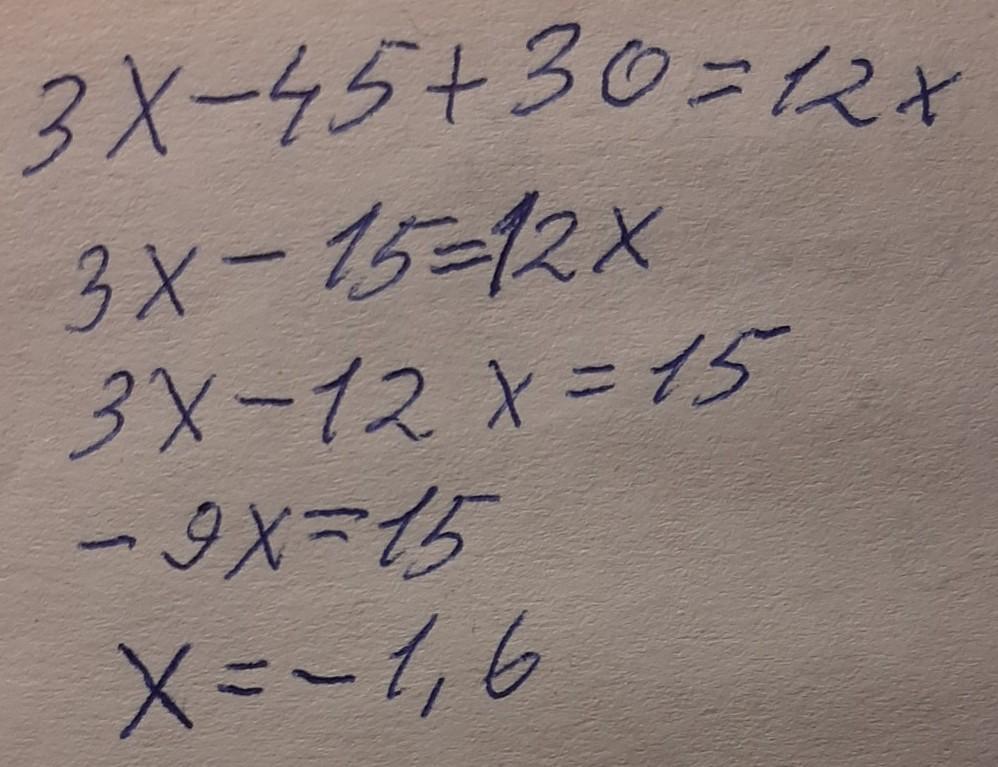 3x-45+30=12x
3x-15=12x
3x-12x=15
-9x=15
x=-1,6